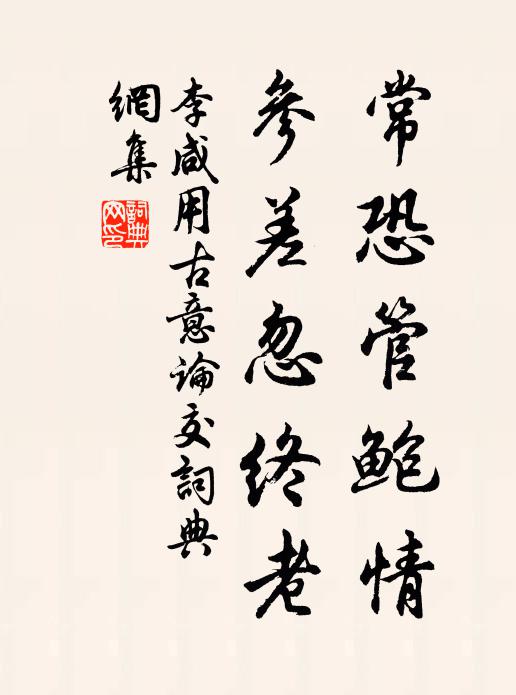 常恐管鲍情
參差忽終老
李咸用古意論交詞典
網集
詞典
网印